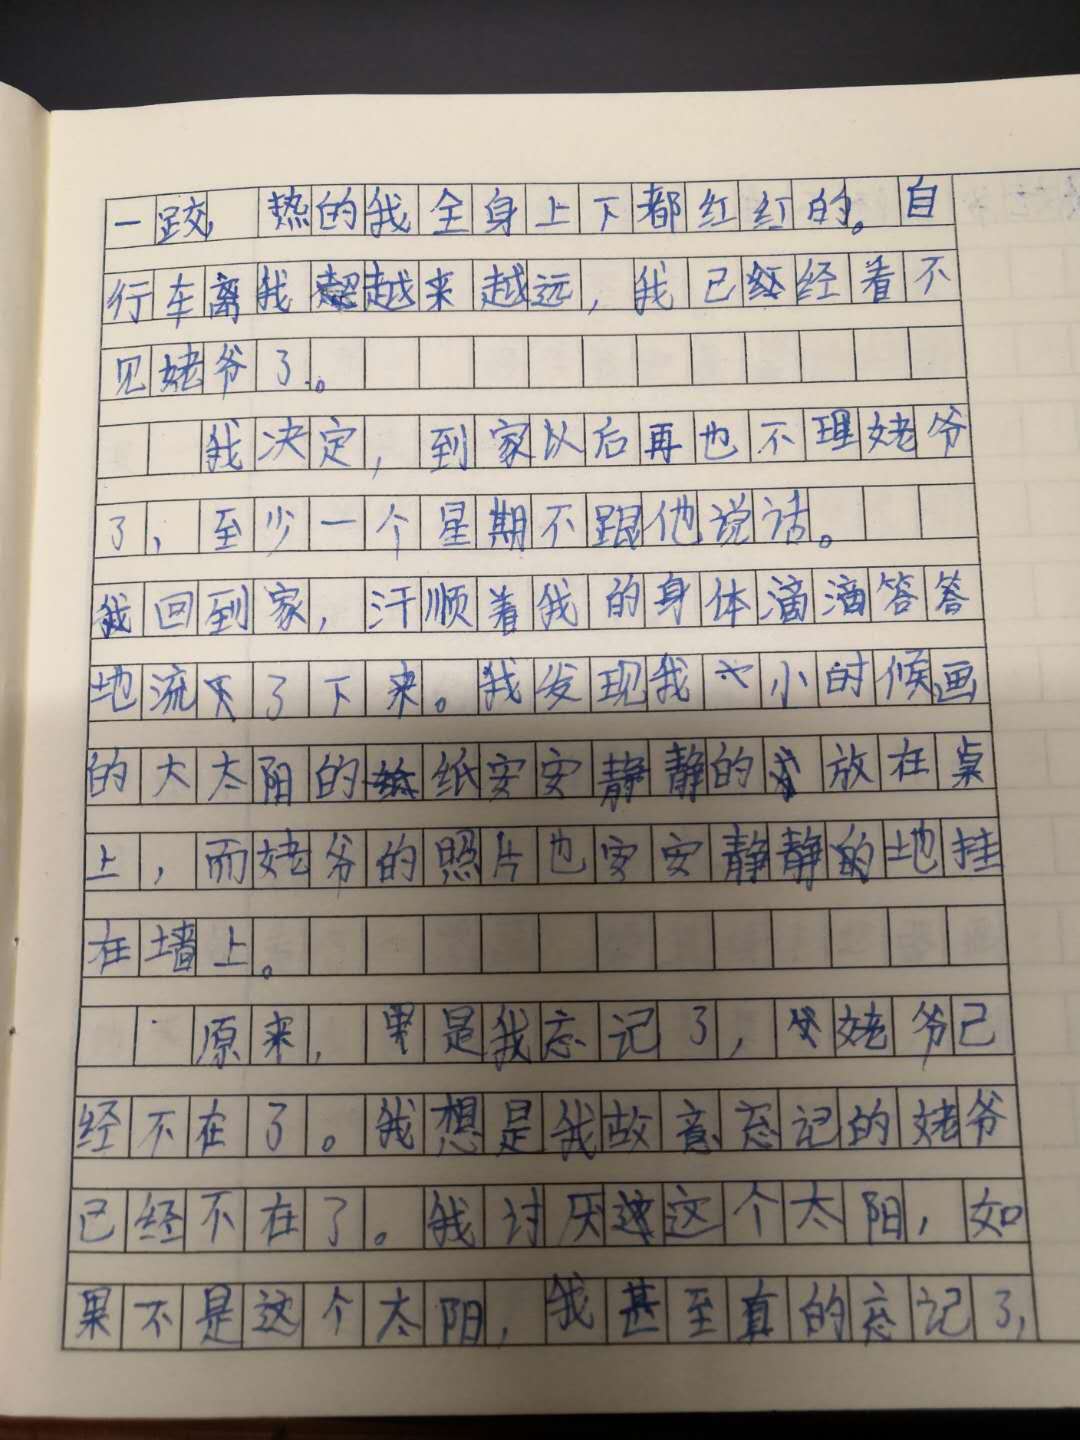 一跤，热的我全身上下都红红的。自
行车离我越来越远，我已经看不
见姥爷了。
我决定，到家以后再也不理姥爷
了，至少一个星期不跟他说话。
我回到家，汗顺着我的身体滴滴答答
地流了下来。我发现我小时候画
的大太阳的纸安安静静的放在桌
上，而姥爷的照片也安安静静地挂
在墙上。
原来，是我忘记了，姥爷已
经不在了。我想是我故意忘记的姥爷
已经不在了。我讨厌这个太阳，如
果不是这个太阳，我甚至真的忘记了，